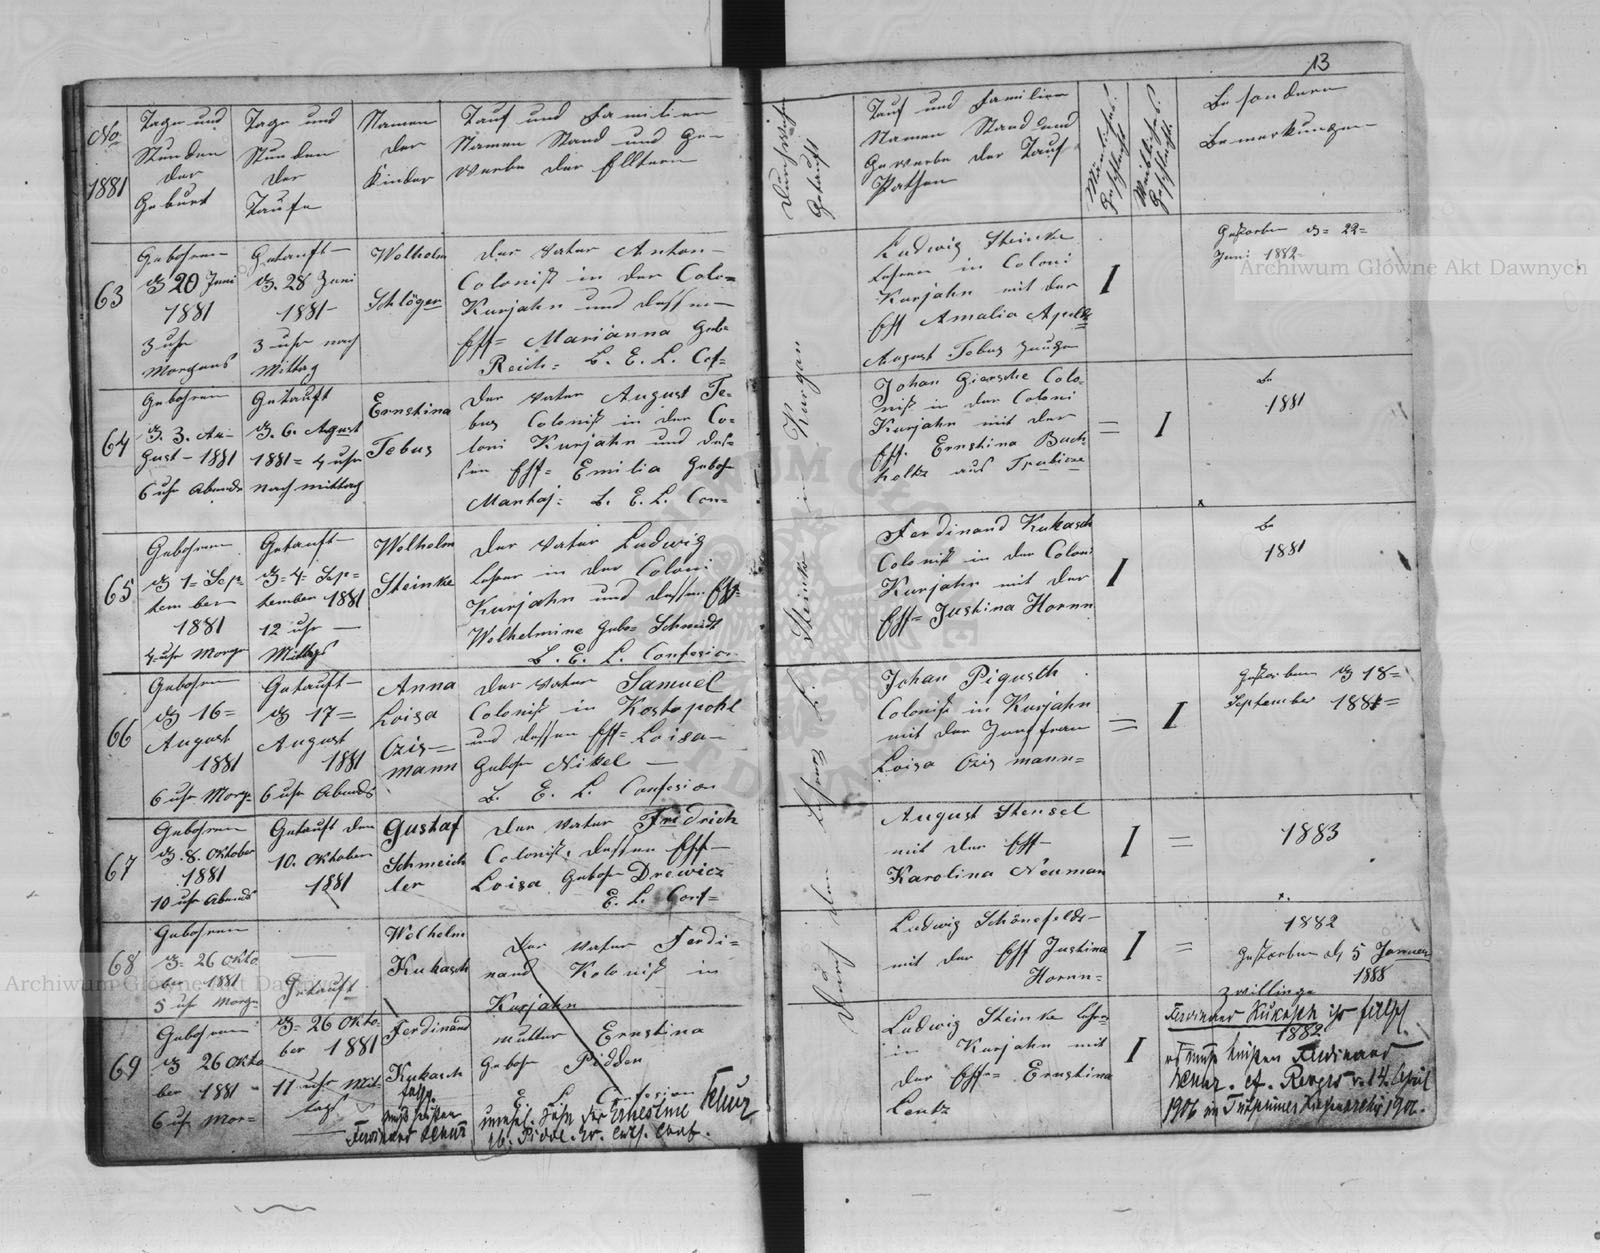 13
No
1881
Tage und
Stunden
der
Geburt
Tage und
Stunden
der
Taufe
Namen
der
Kinder
Tauf und Familien
Namen Stand und Ge=
werbe der Elltern
Getauft
Tauf und Familien
Namen Stand und
Gewerbe der Tauf
Pathen
Besondere
Bemerkungen
63
Gebohren
d 20 Juni
1881
3 uhr
Morgens
Getauft
d. 28 Juni
1881
3 uhr nach
Mittag
Welhelm
Schlöger
der Vater Anton
Colonist in der Colo=
Kurjahn und dessen
Ehf= Marianna Geb=
Reich= L. E. L. Cof=
Ludwig Steinke
Lehrer in Coloni
Kurjahn mit der
Ehf Amalia
August Tebus Zeuge
I
Gestorben d= 22=
Juni 1882
64
Gebohren
d. 3. Au=
gust 1881
6 uhr Abends
Getauft
d. 6. August
1881= 4 uhr
nach mittag
Ernstina
Tebus
der Vater August Te=
bus Colonist in der Co=
loni Kurjahn und des=
sen Ehf= Emilia Geboh
Mantaj= L. E. L. Con=
Johan Giersche Colo=
nist in der Coloni
Kurjahn mit der
Ehf. Ernstina Buch
holtz aus
= I
1881
65
Gebohren
d 1= Sep=
tember
1881
4 uhr Morge
Getauft
d= 4= Sep=
tember 1881
12 uhr
Mittags
Welhelm
Steinke
der Vater Ludwig
Lehrer in der Coloni
Kurjahn und dessen Ehf=
Welhelmine Gebo= Schmidt
L. E. L. Confesion
Ferdinand Kukasch
Colonist in der Coloni
Kurjahn mit der
Ehf= Justina Hornn
I
1881
66
Gebohren
d 16=
August
1881
6 uhr Morg=
Getauft
d 17=
August
1881
6 uhr Abends
Anna
Loisa
Czis=
mann
der Vater Samuel
Colonist in Kostopohl
und dessen Ehf= Loisa
Geboh Nikel
L. E. L. Confesion
Johan Pigusch
Colonist in Kurjahn
mit der Jungfrau
Loisa Czismann=
= I
Gestorben d 18=
September 1881=
67
Gebohren
d. 8. Oktober
1881
10 uhr Abends
Getauft den
10. Oktober
1881
Gustaf
Schmeich
ler
der Vater Fredrich
Colonist, dessen Ehf
Loisa Geboh Drewicz
E. L. Conf=
August Stensel
mit der Ehf
Karolina Neuman
I =
1883
68
Gebohren
d= 26 Okto
ber 1881
5 uhr Morge
Getauft
Welhelm
Kukasch
der Vater Ferdi=
nand Kolonist in
Kurjahn
Ludwig Schönefeldt
mit der Ehf Justina
Hornn=
I =
1882
Gestorben d 5 Januar
1888
Zwillinge
69
Gebohren
d 26 Okto
ber 1881
6 uh Mor=
d= 26 Okto=
ber 1881
11 uhr Mit=
tags
Ferdinand
Kukasch
mutter Ernstina
Geboh Pidden
E. L. Confesion
Ludwig Steinke Lehr=
in Kurjahn mit
der Ehf= Ernstina
Lentz
I
Kukasch
1882
Ferdinand
14. April
1906
1906.
Archiwum Główne Akt Dawnych
Archiwum Główne Akt Dawnych